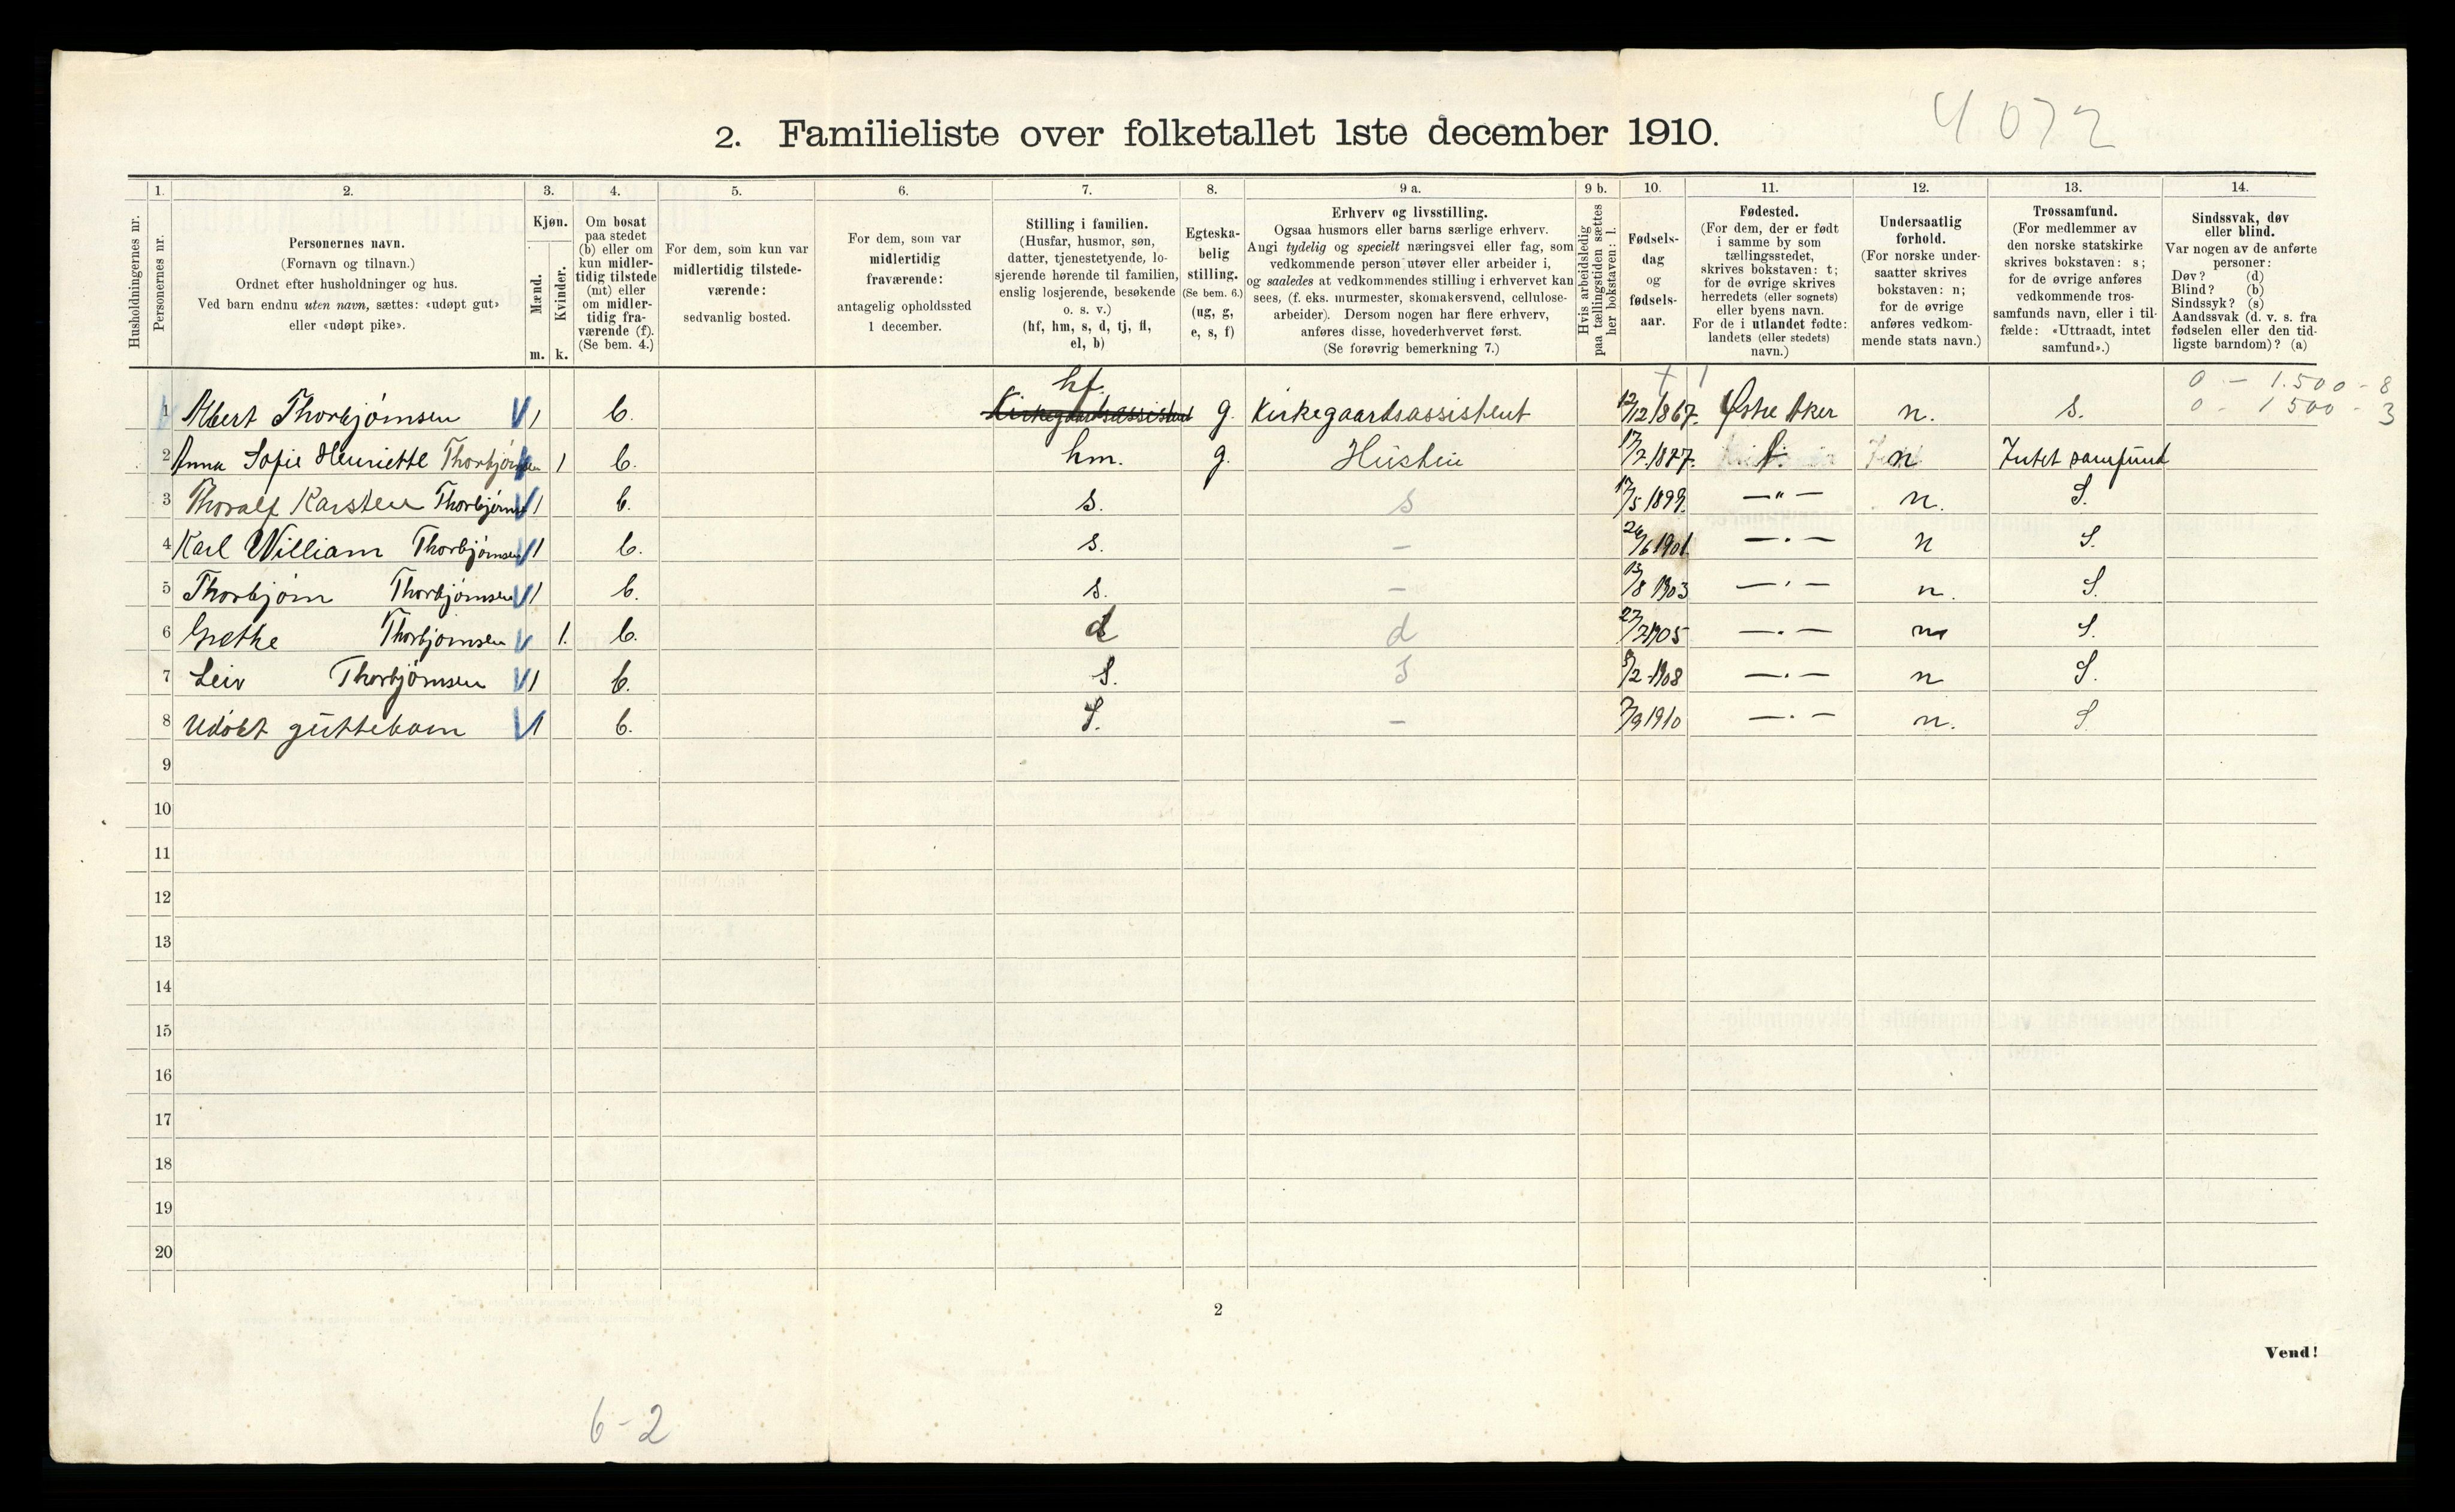 4072
2. Familieliste over folketallet 1ste december 1910.
1. 2. 3. 4. 5. 6. 7. 8. 9 a. 9 b. 10. 11. 12. 13. 14.
Husholdningernes nr.
Personernes nr.
Personernes navn.
(Fornavn og tilnavn.)
Ordnet efter husholdninger og hus.
Ved barn endnu uten navn, sættes: «udøpt gut»
eller «udøpt pike».
Kjøn.
Mænd.
Kvinder.
m. k.
Om bosat
paa stedet
(b) eller om
kun midler-
tidig tilstede
(mt) eller
om midler-
tidig fra-
værende (f).
(Se bem. 4.)
For dem, som kun var
midlertidig tilstede-
værende:
sedvanlig bosted.
For dem, som var
midlertidig
fraværende:
antagelig opholdssted
1 december.
Stilling i familien.
(Husfar, husmor, søn,
datter, tjenestetyende, lo-
sjerende hørende til familien,
enslig losjerende, besøkende
o. s. v.)
(hf, hm, s, d, tj, fl,
el, b)
Egteska-
belig
stilling.
(Se bem. 6.)
(ug, g,
e, s, f)
Erhverv og livsstilling.
Ogsaa husmors eller barns særlige erhverv.
Angi tydelig og specielt næringsvei eller fag, som
vedkommende person utøver eller arbeider i,
og saaledes at vedkommendes stilling i erhvervet kan
sees, (f. eks. murmester, skomakersvend, cellulose-
arbeider). Dersom nogen har flere erhverv,
anføres disse, hovederhvervet først.
(Se forøvrig bemerkning 7.)
Hvis arbeidsledig
paa tællingstiden sættes
her bokstaven: l.
Fødsels-
dag
og
fødsels-
aar.
Fødested.
(For dem, der er født
i samme by som
tællingsstedet,
skrives bokstaven: t;
for de øvrige skrives
herredets (eller sognets)
eller byens navn.
For de i utlandet fødte:
landets (eller stedets)
navn.)
Undersaatlig
forhold.
(For norske under-
saatter skrives
bokstaven: n;
for de øvrige
anføres vedkom-
mende stats navn.)
Trossamfund.
(For medlemmer av
den norske statskirke
skrives bokstaven: s;
for de øvrige anføres
vedkommende tros-
samfunds navn, eller i til-
fælde: «Uttraadt, intet
samfund».)
Sindssvak, døv
eller blind.
Var nogen av de anførte
personer:
Døv? (d)
Blind? (b)
Sindssyk? (s)
Aandssvak (d. v. s. fra
fødselen eller den tid-
ligste barndom)? (a)
hf. 0 - 1.500 - 8
1 Albert Thorbjørnsen 1 b. Kirkegaardsassistent g. Kirkegaardsassistent 12/12 1867. Østre Aker n. s. 0 - 1500 - 3
2 Anna Sofie Henriette Thorbjørnsen 1 b. hm. g. Hustru 17/7 1877. t. n Intet samfund
3 Thoralf Karsten Thorbjørns 1 b. s. s 17/5 1899. —"— n. S.
4 Karl William Thorbjørnsen 1 b. s. — 26/6 1901. —"— n S.
5 Thorbjørn Thorbjørnsen 1 b. s. — 13/8 1903 —"— n. S.
6 Grethe Thorbjørnsen 1. b. d d 27/7 1905 —"— n S.
7 Leiv Thorbjørnsen 1 b. S. S 8/2 1908 —"— n S.
8 Udøbt guttebarn 1 b. S. — 7/9 1910 —"— n. S
9
10
11
12
13
14
15
16
17
18
19
20
2
Vend!
6-2